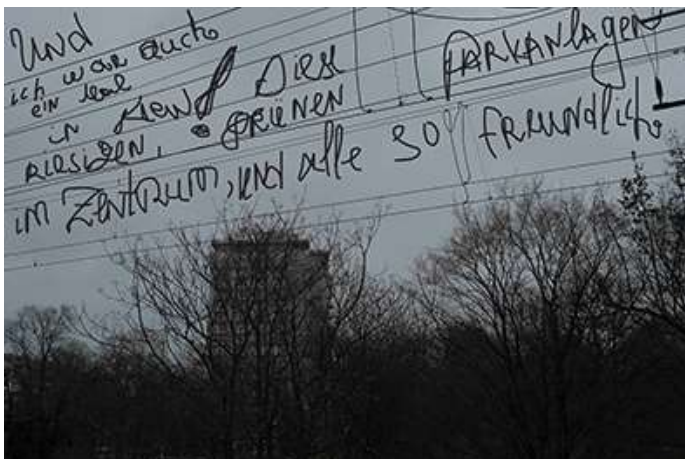 Und
ich war auch
ein Mal
in Kiew! Diese
RIESIGEN, GRÜNEN PARKANlAgEN
im Zentrum, und alle so fREUNdlich.